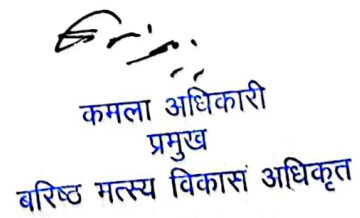 कमला अधिकारी
प्रमुख
बरिष्ठ मत्स्य विकास अधिकृत